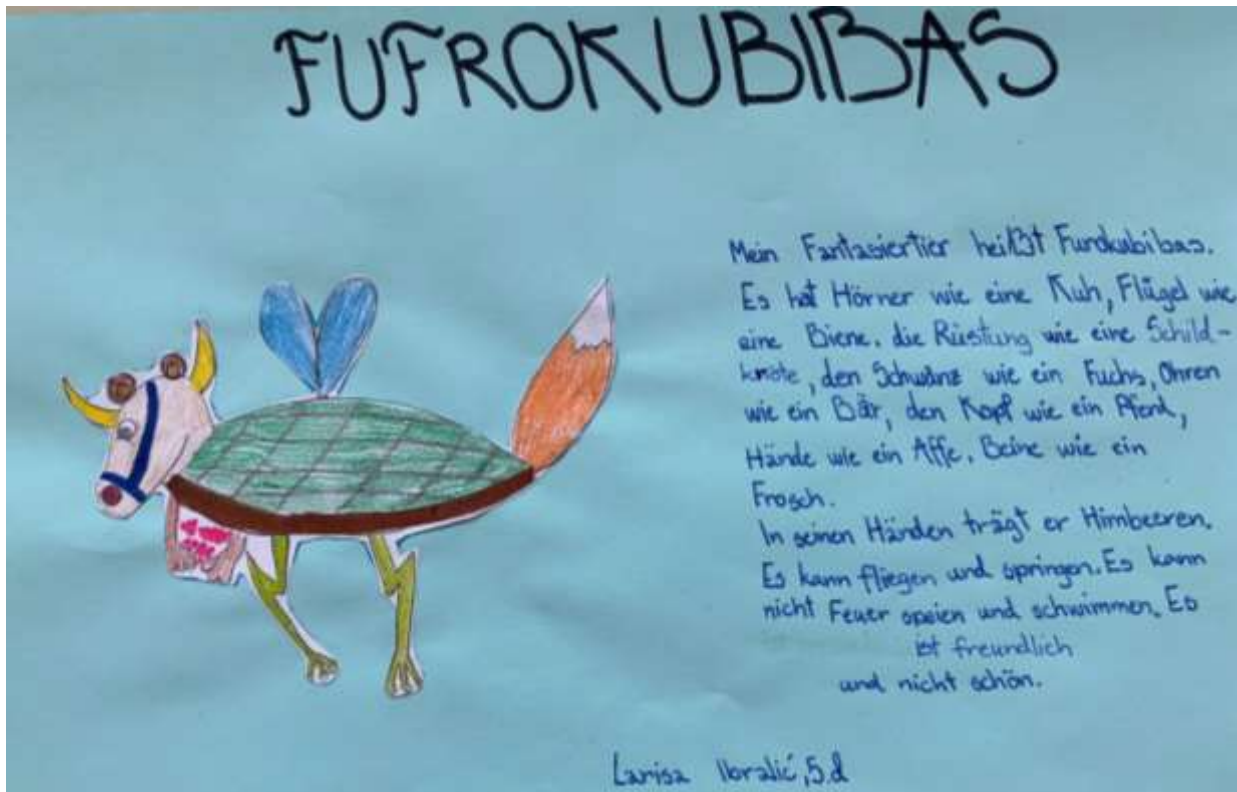 FUFROKUBIBAS
Mein Fantasiertier heißt Furokubibas.
Es hat Hörner wie eine Kuh, Flügel wie
eine Biene, die Rüstung wie eine Schild-
kröte, den Schwanz wie ein Fuchs, Ohren
wie ein Bär, den Kopf wie ein Pferd,
Hände wie ein Affe, Beine wie ein
Frosch.
In seinen Händen trägt er Himbeeren.
Es kann fliegen und springen. Es kann
nicht Feuer speien und schwimmen. Es
ist freundlich
und nicht schön.
Larisa Ibralić, 5.d